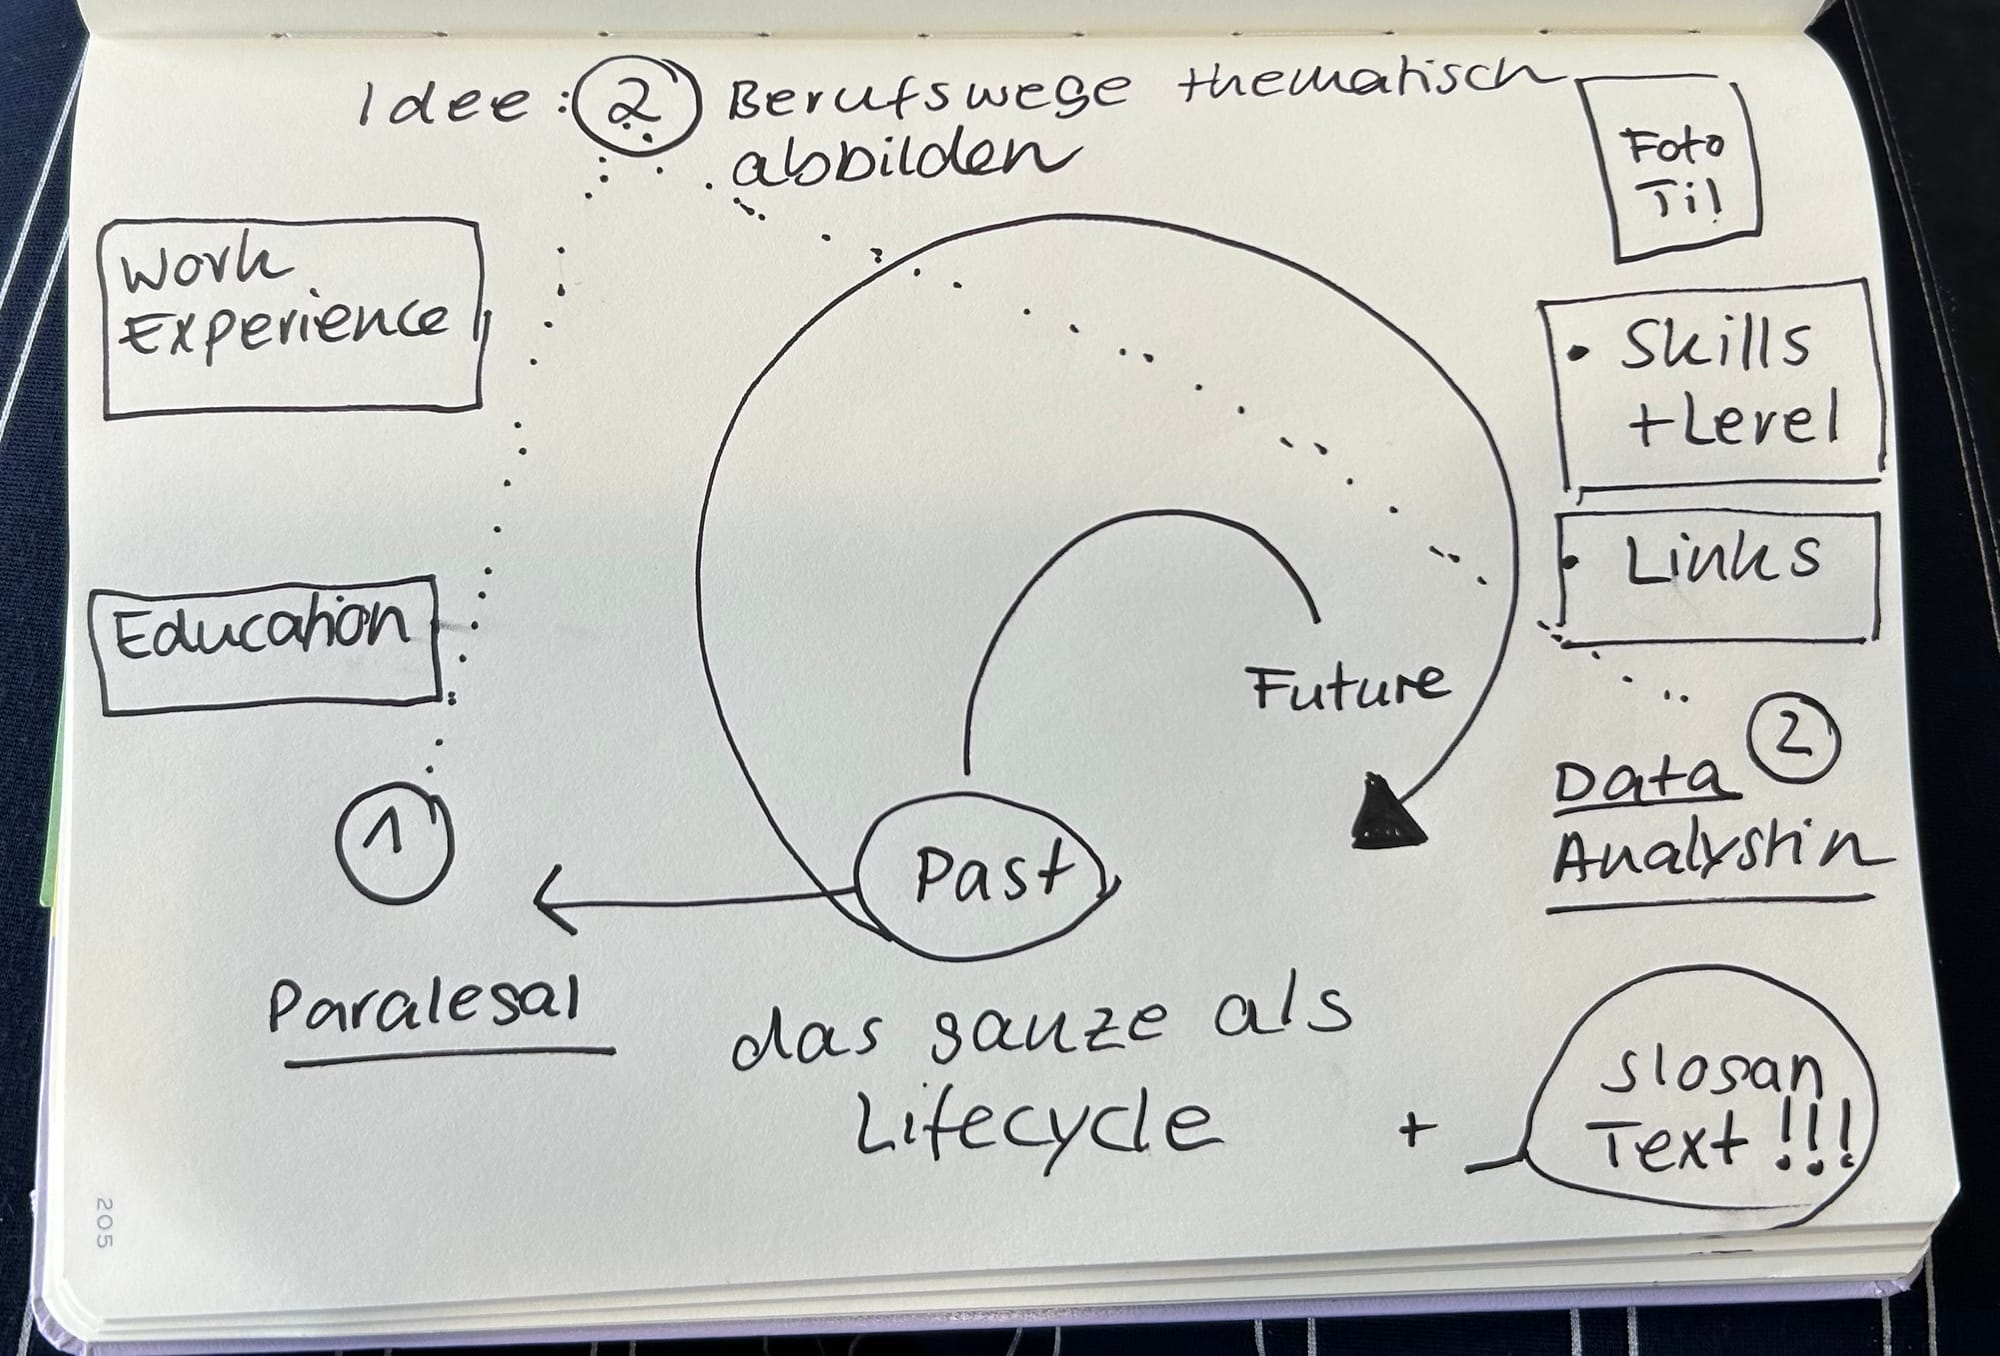 Idee: 2 Berufswege thematisch
abbilden
Foto
Til
Work
Experience
• Skills
+ Level
• Links
Education
Future
2
Data
Analystin
1
Past
Paralegal
das ganze als
Lifecycle
+
Slogan
Text !!!
205